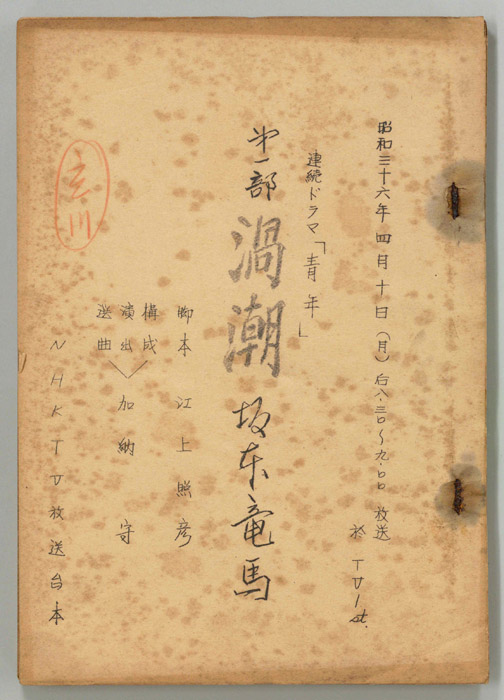 昭和三十六年四月十日（月）后八・三〇〜九・〇〇放送
於 TV1st.
連続ドラマ「青年」
第一部 渦潮 坂本竜馬
脚本 江上照彦
構成
演出 加納 守
選曲
NHKTV放送台本